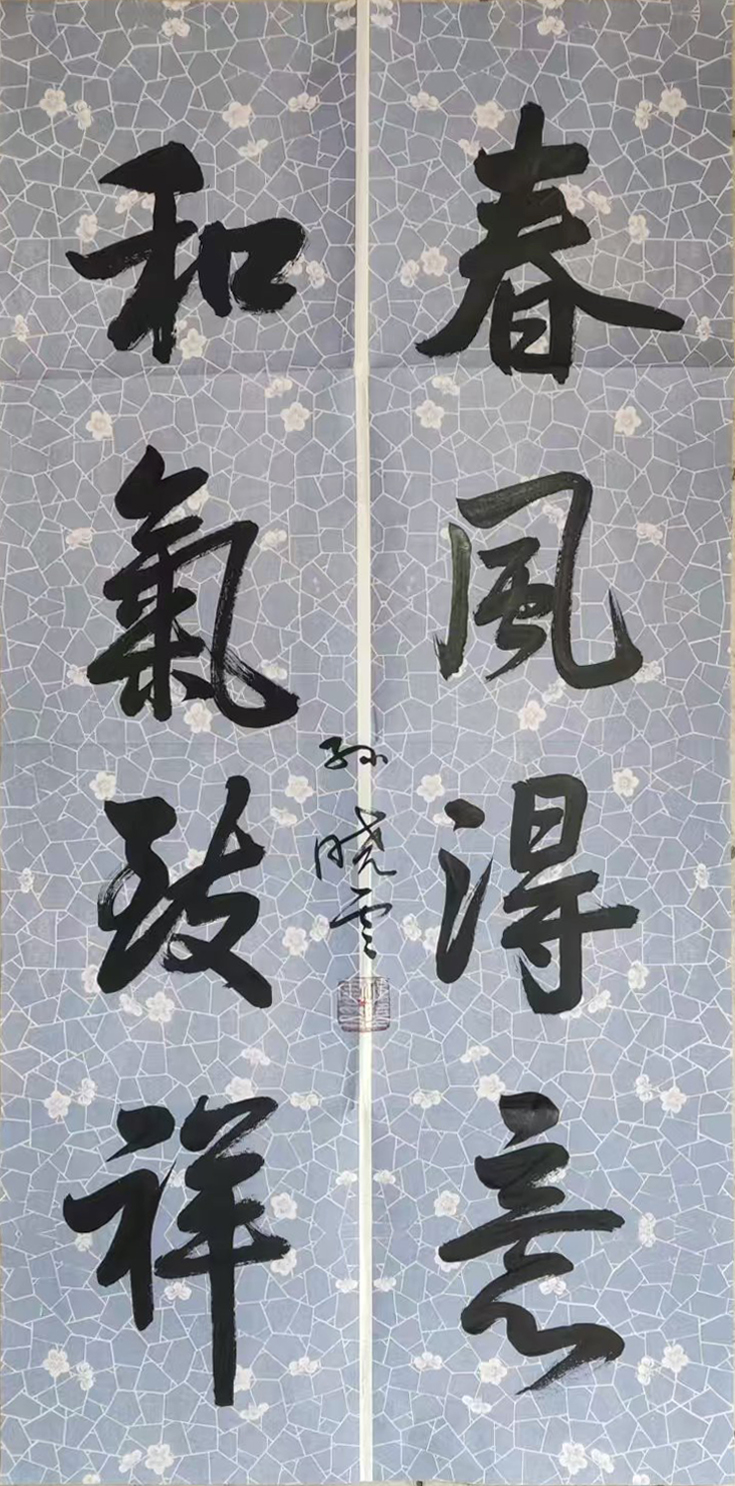 春風得意
和氣致祥
孙晓雲